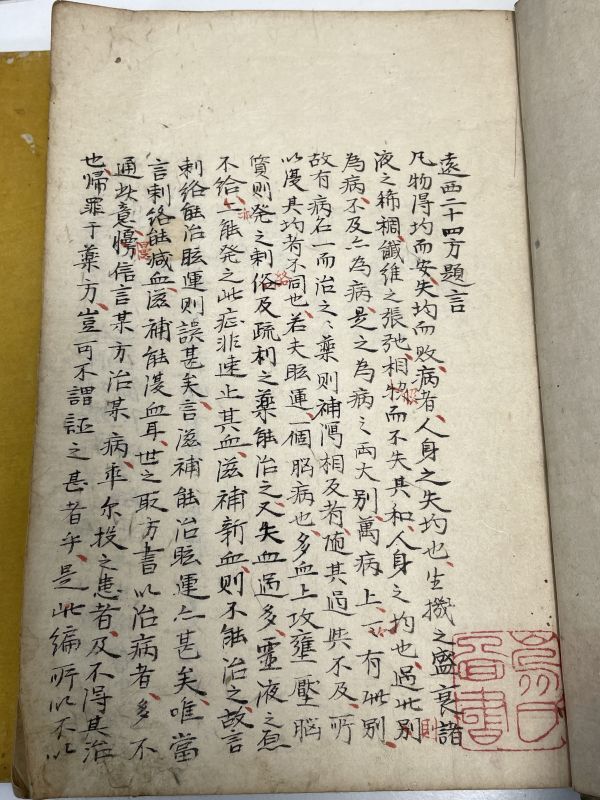 遠西二十四方題言
凡物得均而安失均而敗病者人身之失均也生機之盛衰諸
液之稀稠纖維之張弛相均而不失其和人身之均也過此則
為病不及亦為病是之為病之両大别萬病上下有此别
故有病仁一而治之之藥則補瀉相反者随其過與不及所
以復其均者不同也若夫眩運一個脳病也多血上攻壅壓脳
質則発之刺絡及疏利之藥能治之又失血過多靈液之
不給亦能発之此症非速止其血滋補新血則不能治之故言
刺絡能治眩運則誤甚矣言滋補能治眩運亦甚矣唯當
言刺絡能減血滋補能復血耳世之取方書以治病者多不
通此意慢信言某方治某病率尔投之患者及不得其治
也帰罪于藥方豈可不謂誣之甚者乎是此編所以不以